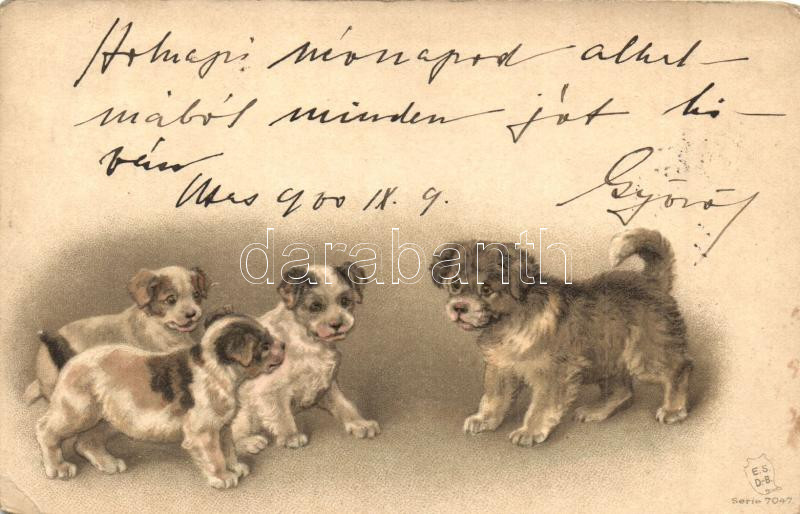 Holnapi névnapod alkal-
mából minden jót ki-
ván
900 IX. 9. György
darabanth
E.S.
D.-B.
Serie 7047.